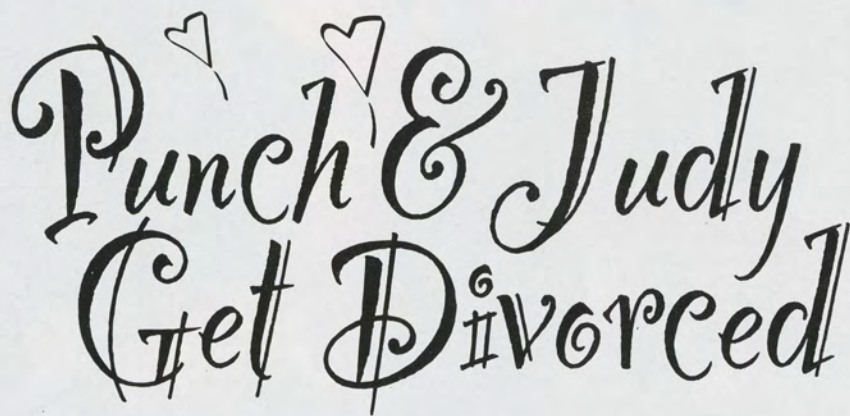 Punch & Judy
Get Divorced